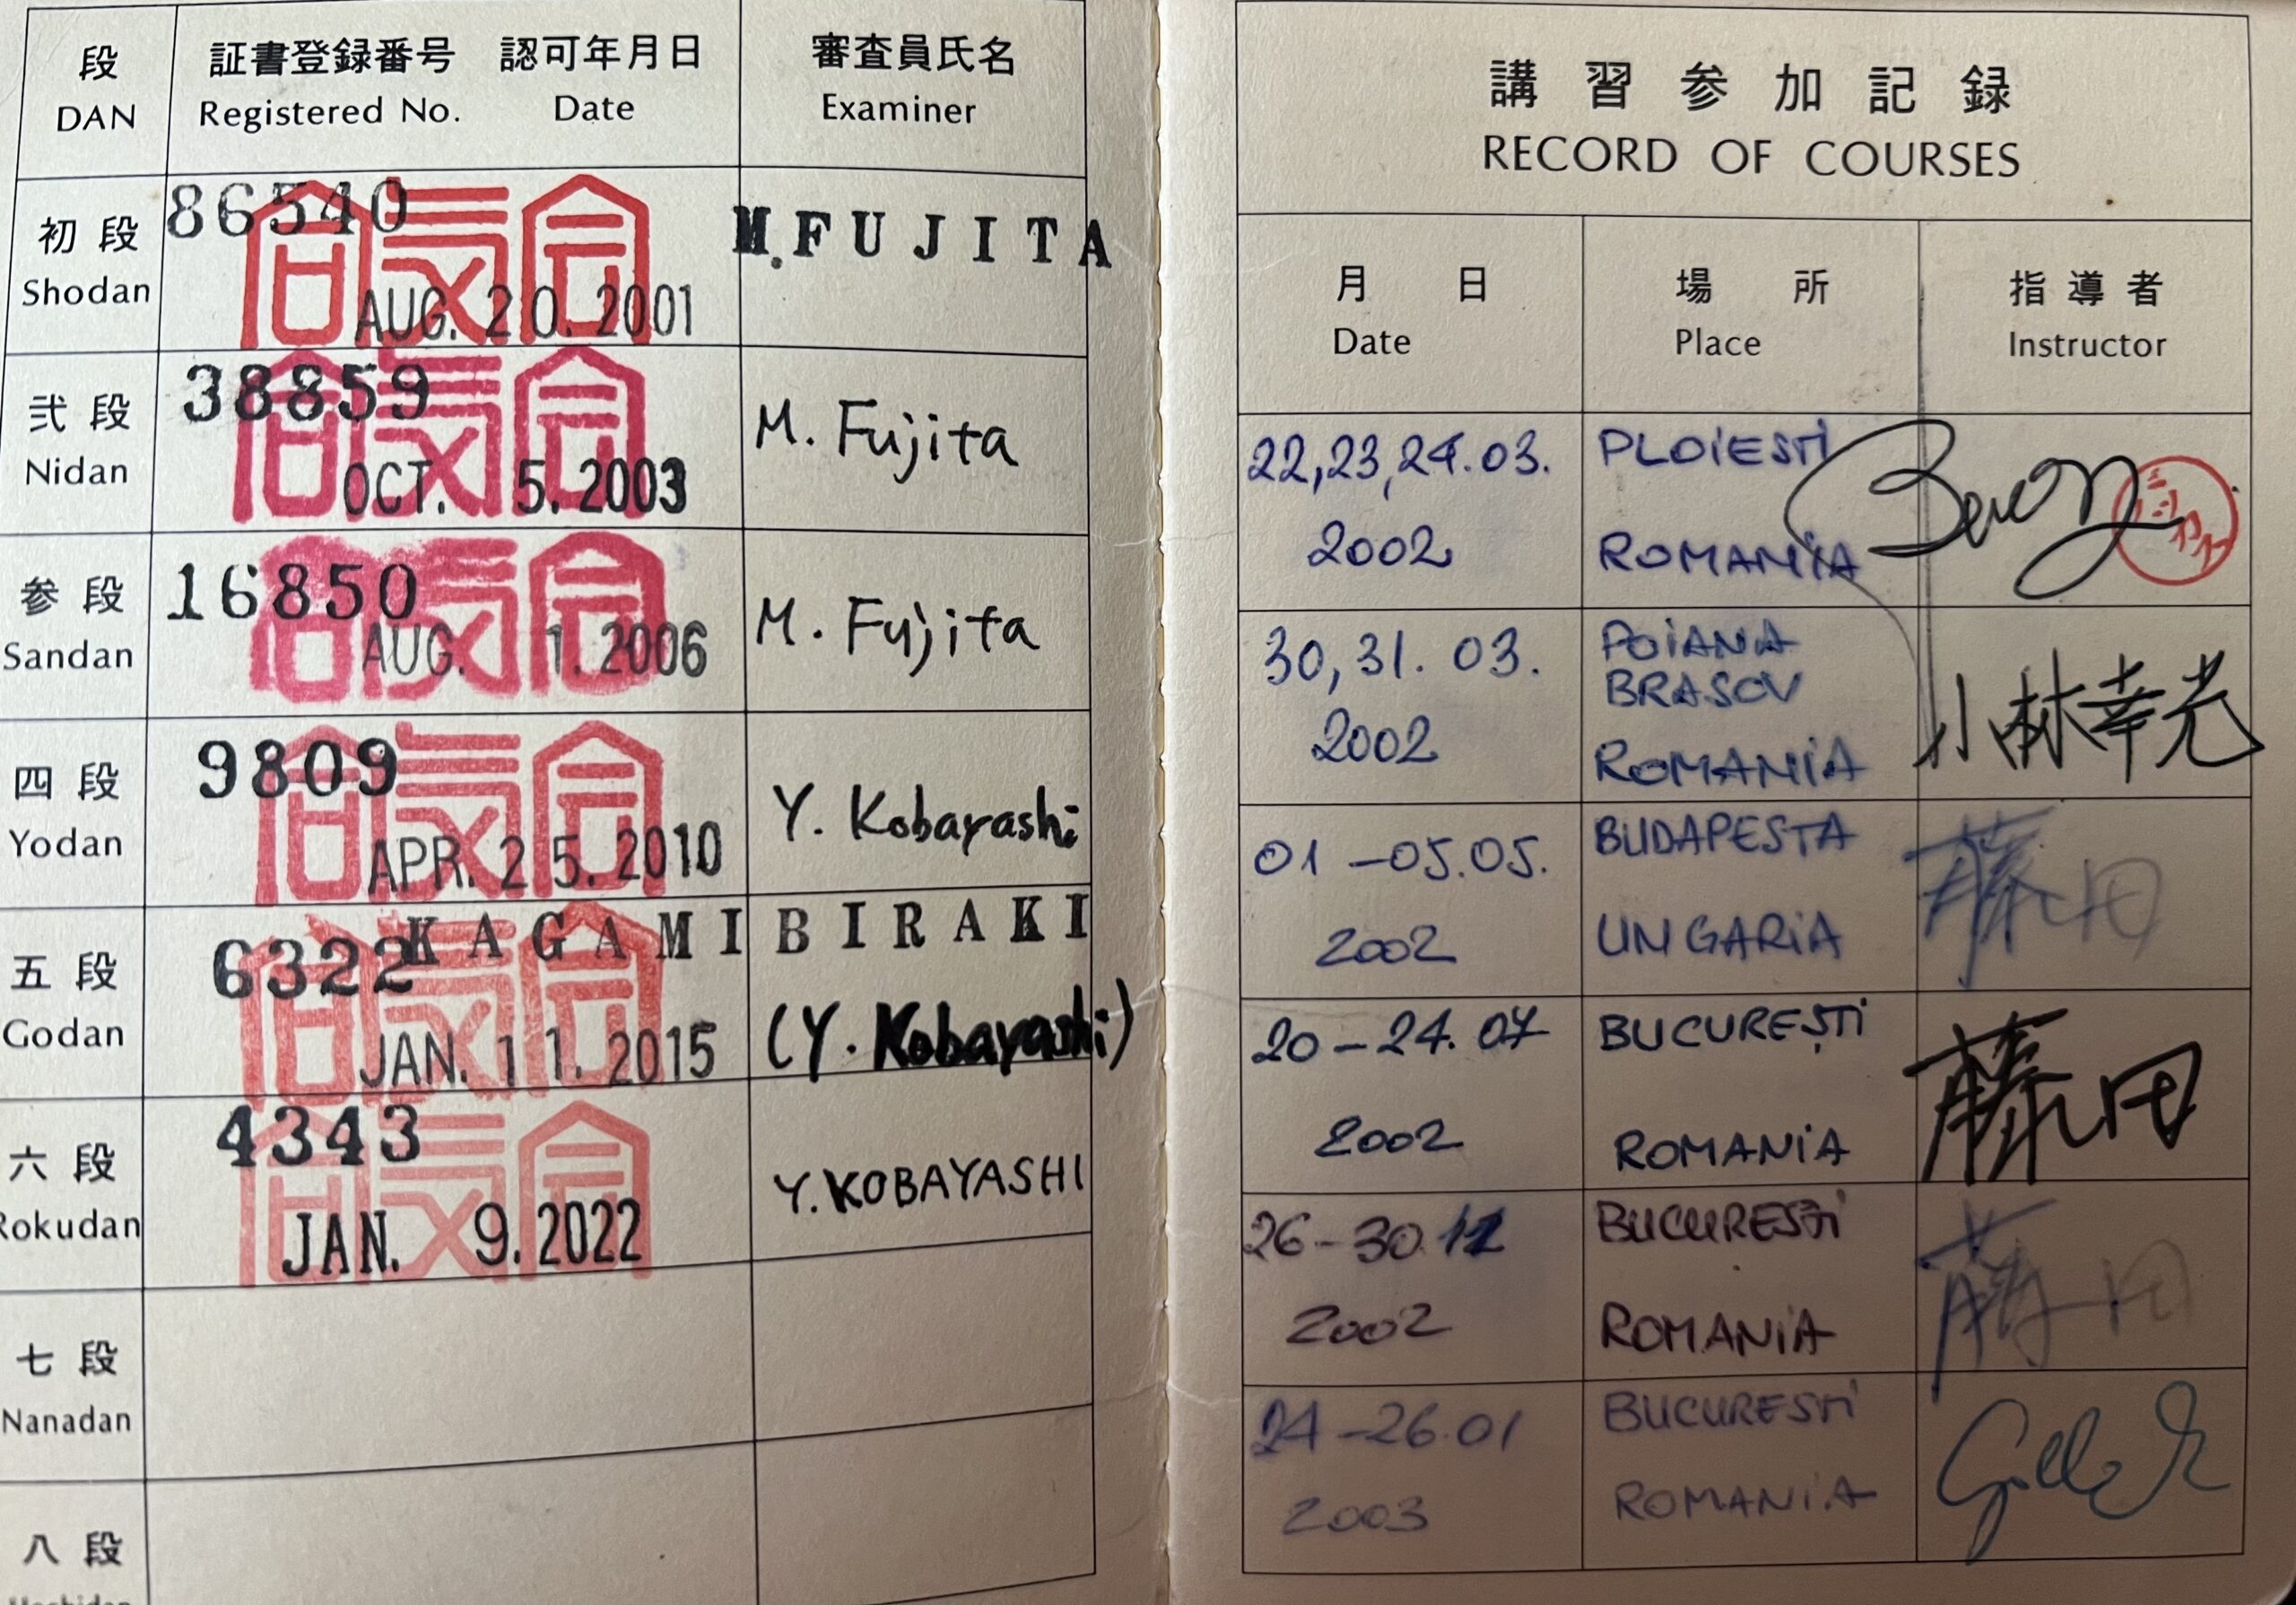 段
DAN
証書登録番号 認可年月日
Registered No. Date
審査員氏名
Examiner
初段
Shodan
86540
合気会
AUG. 20. 2001
M. FUJITA
弐段
Nidan
38859
合気会
OCT. 5. 2003
M. Fujita
参段
Sandan
16850
合気会
AUG. 1. 2006
M. Fujita
四段
Yodan
9809
合気会
APR. 25. 2010
Y. Kobayashi
五段
Godan
6322
合気会
KAGAMIBIRAKI
JAN. 11. 2015
(Y. Kobayashi)
六段
Rokudan
4343
合気会
JAN. 9. 2022
Y. KOBAYASHI
七段
Nanadan
八段
講習参加記録
RECORD OF COURSES
月日
Date
場所
Place
指導者
Instructor
22,23,24.03.
2002
PLOIESTI
ROMANIA
30,31.03.
2002
POIANA
BRASOV
ROMANIA
小林幸光
01-05.05.
2002
BUDAPESTA
UNGARIA
藤田
20-24.07
2002
BUCUREȘTI
ROMANIA
藤田
26-30.
2002
BUCURESTI
ROMANIA
藤田
24-26.01
2003
BUCURESTI
ROMANIA